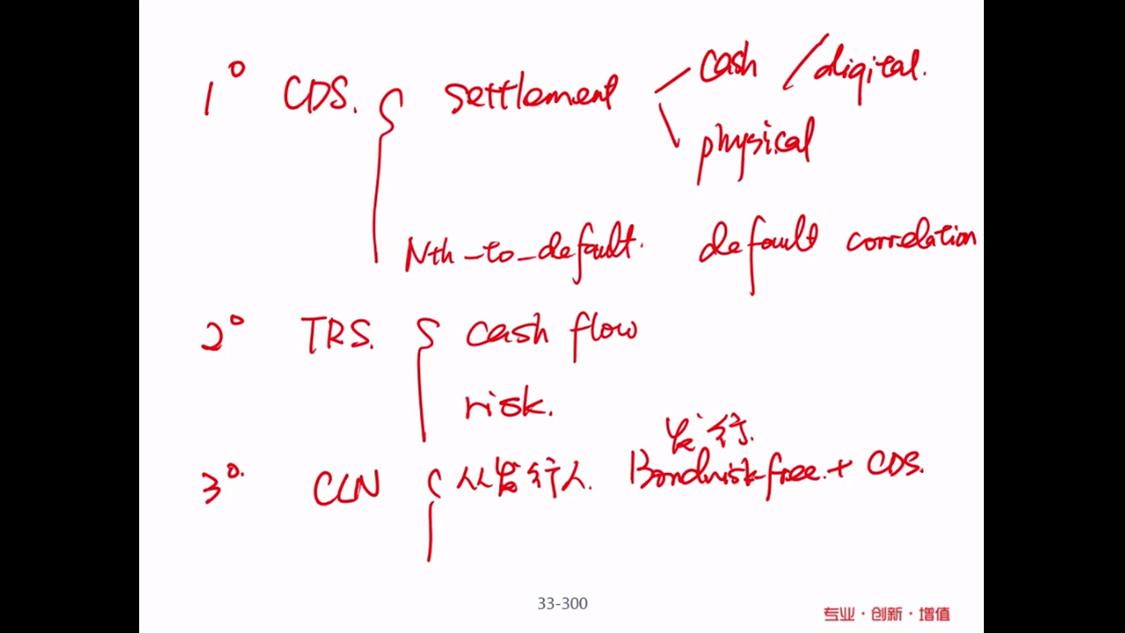 1° CDS. { settlement cash / digital.
physical
Nth-to-default. default correlation
2° TRS. { cash flow
risk.
发行.
3°. CLN { 从发行人. Bond risk free. + CDS.
33-300
专业·创新·增值